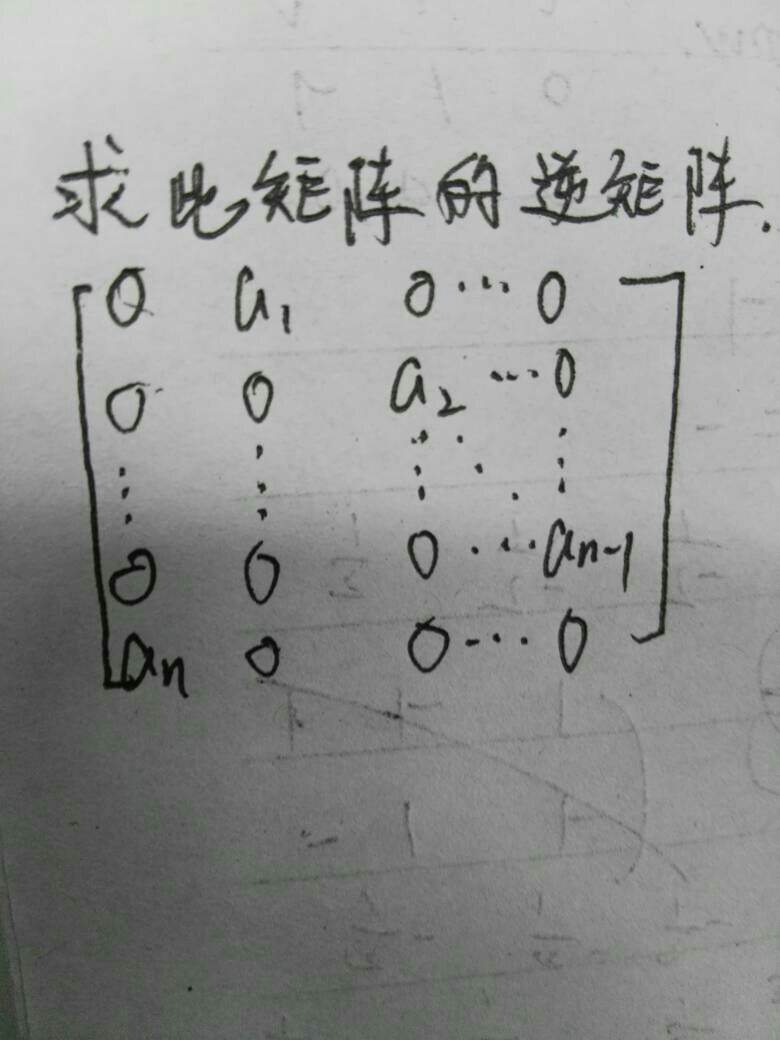 求此矩阵的逆矩阵.
0 a₁ 0 ··· 0
0 0 a₂ ··· 0
⋮ ⋮ ⋮ ⋱ ⋮
0 0 0 ··· aₙ₋₁
aₙ 0 0 ··· 0